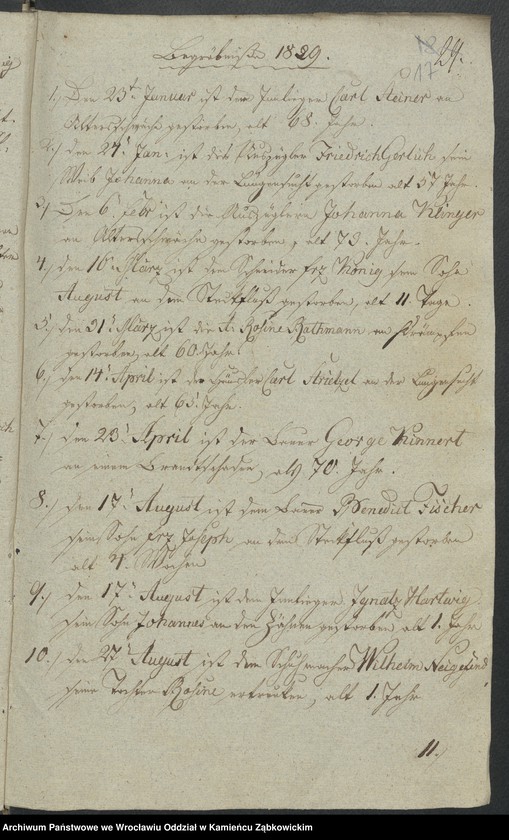 Begräbniße 1829.
18
24.
017
1.) Den 23t Januar ist der Innlieger Carl Steiner an
Altersschwäche gestorben, alt 68. Jahr.
2.) den 27t Jan: ist des Auszügler Friedrich Gerlich sein
Weib Johanna an der Lungensucht gestorben alt 57 Jahr.
3.) Den 6. Febr ist die Auszüglerin Johanna Klinger
an Altersschwäche gestorben, alt 73. Jahr.
4.) den 16t März ist dem Schneider frz König sein Sohn
August an dem Steckfluß gestorben, alt 11 Tage.
5.) den 31t März ist die Rosine Rathmann an Krämpfen
gestorben, alt 60. Jahr.
6.) den 14t April ist der Häusler Carl Strietzel an der Lungensucht
gestorben, alt 65. Jahr.
7.) den 23t April ist der Bauer George Kinnert
an einem Brandtschaden, alt 70. Jahr.
8.) den 17t August ist dem Bauer Benedict Fischer
sein Sohn frz Joseph an dem Steckfluß gestorben
alt 4. Wochen
9.) den 17t August ist dem Innlieger Ignatz Hartwig
sein Sohn Johannes an den Zähnen gestorben, alt 1. Jahr
10.) den 27t August ist dem Schuhmacher Wilhelm Neugebaud
seine Tochter Rosine ertrunken, alt 1. Jahr
11.)
Archiwum Państwowe we Wrocławiu Oddział w Kamieńcu Ząbkowickim